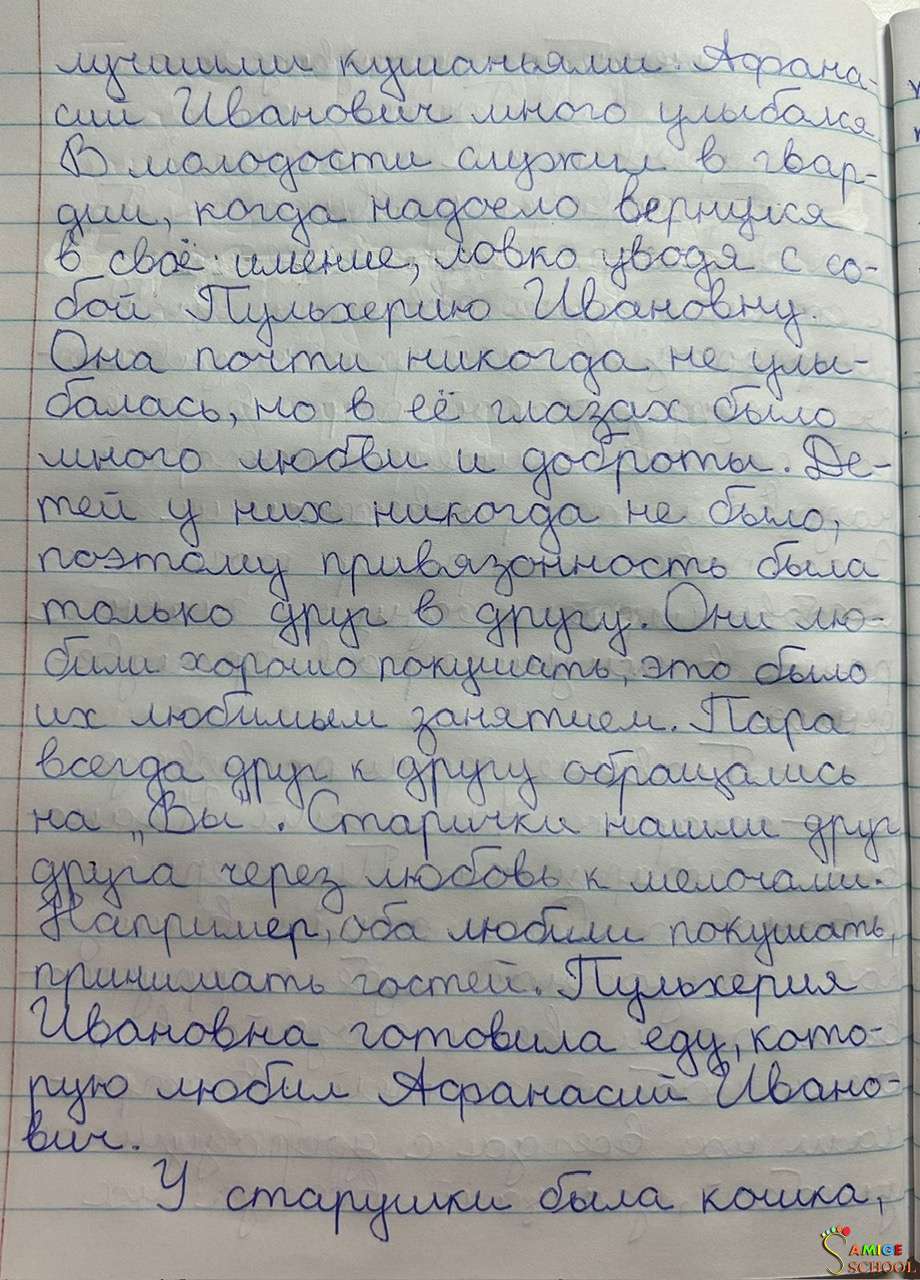 лучшими кушаньями. Афана-
сий Иванович много улыбался.
В молодости служил в гвар-
дии, когда надоело вернулся
в своё имение, ловко уводя с со-
бой Пульхерию Ивановну.
Она почти никогда не улы-
балась, но в её глазах было
много любви и доброты. Де-
тей у них никогда не было,
поэтому привязонность была
только друг в другу. Они лю-
били хорошо покушать, это было
их любимым занятием. Пара
всегда друг к другу обращались
на „Вы". Старички нашли друг
друга через любовь к мелочами.
Например, оба любили покушать,
принимать гостей. Пульхерия
Ивановна готовила еду, кото-
рую любил Афанасий Ивано-
вич.
У старушки была кошка,
SAMIGE
SCHOOL